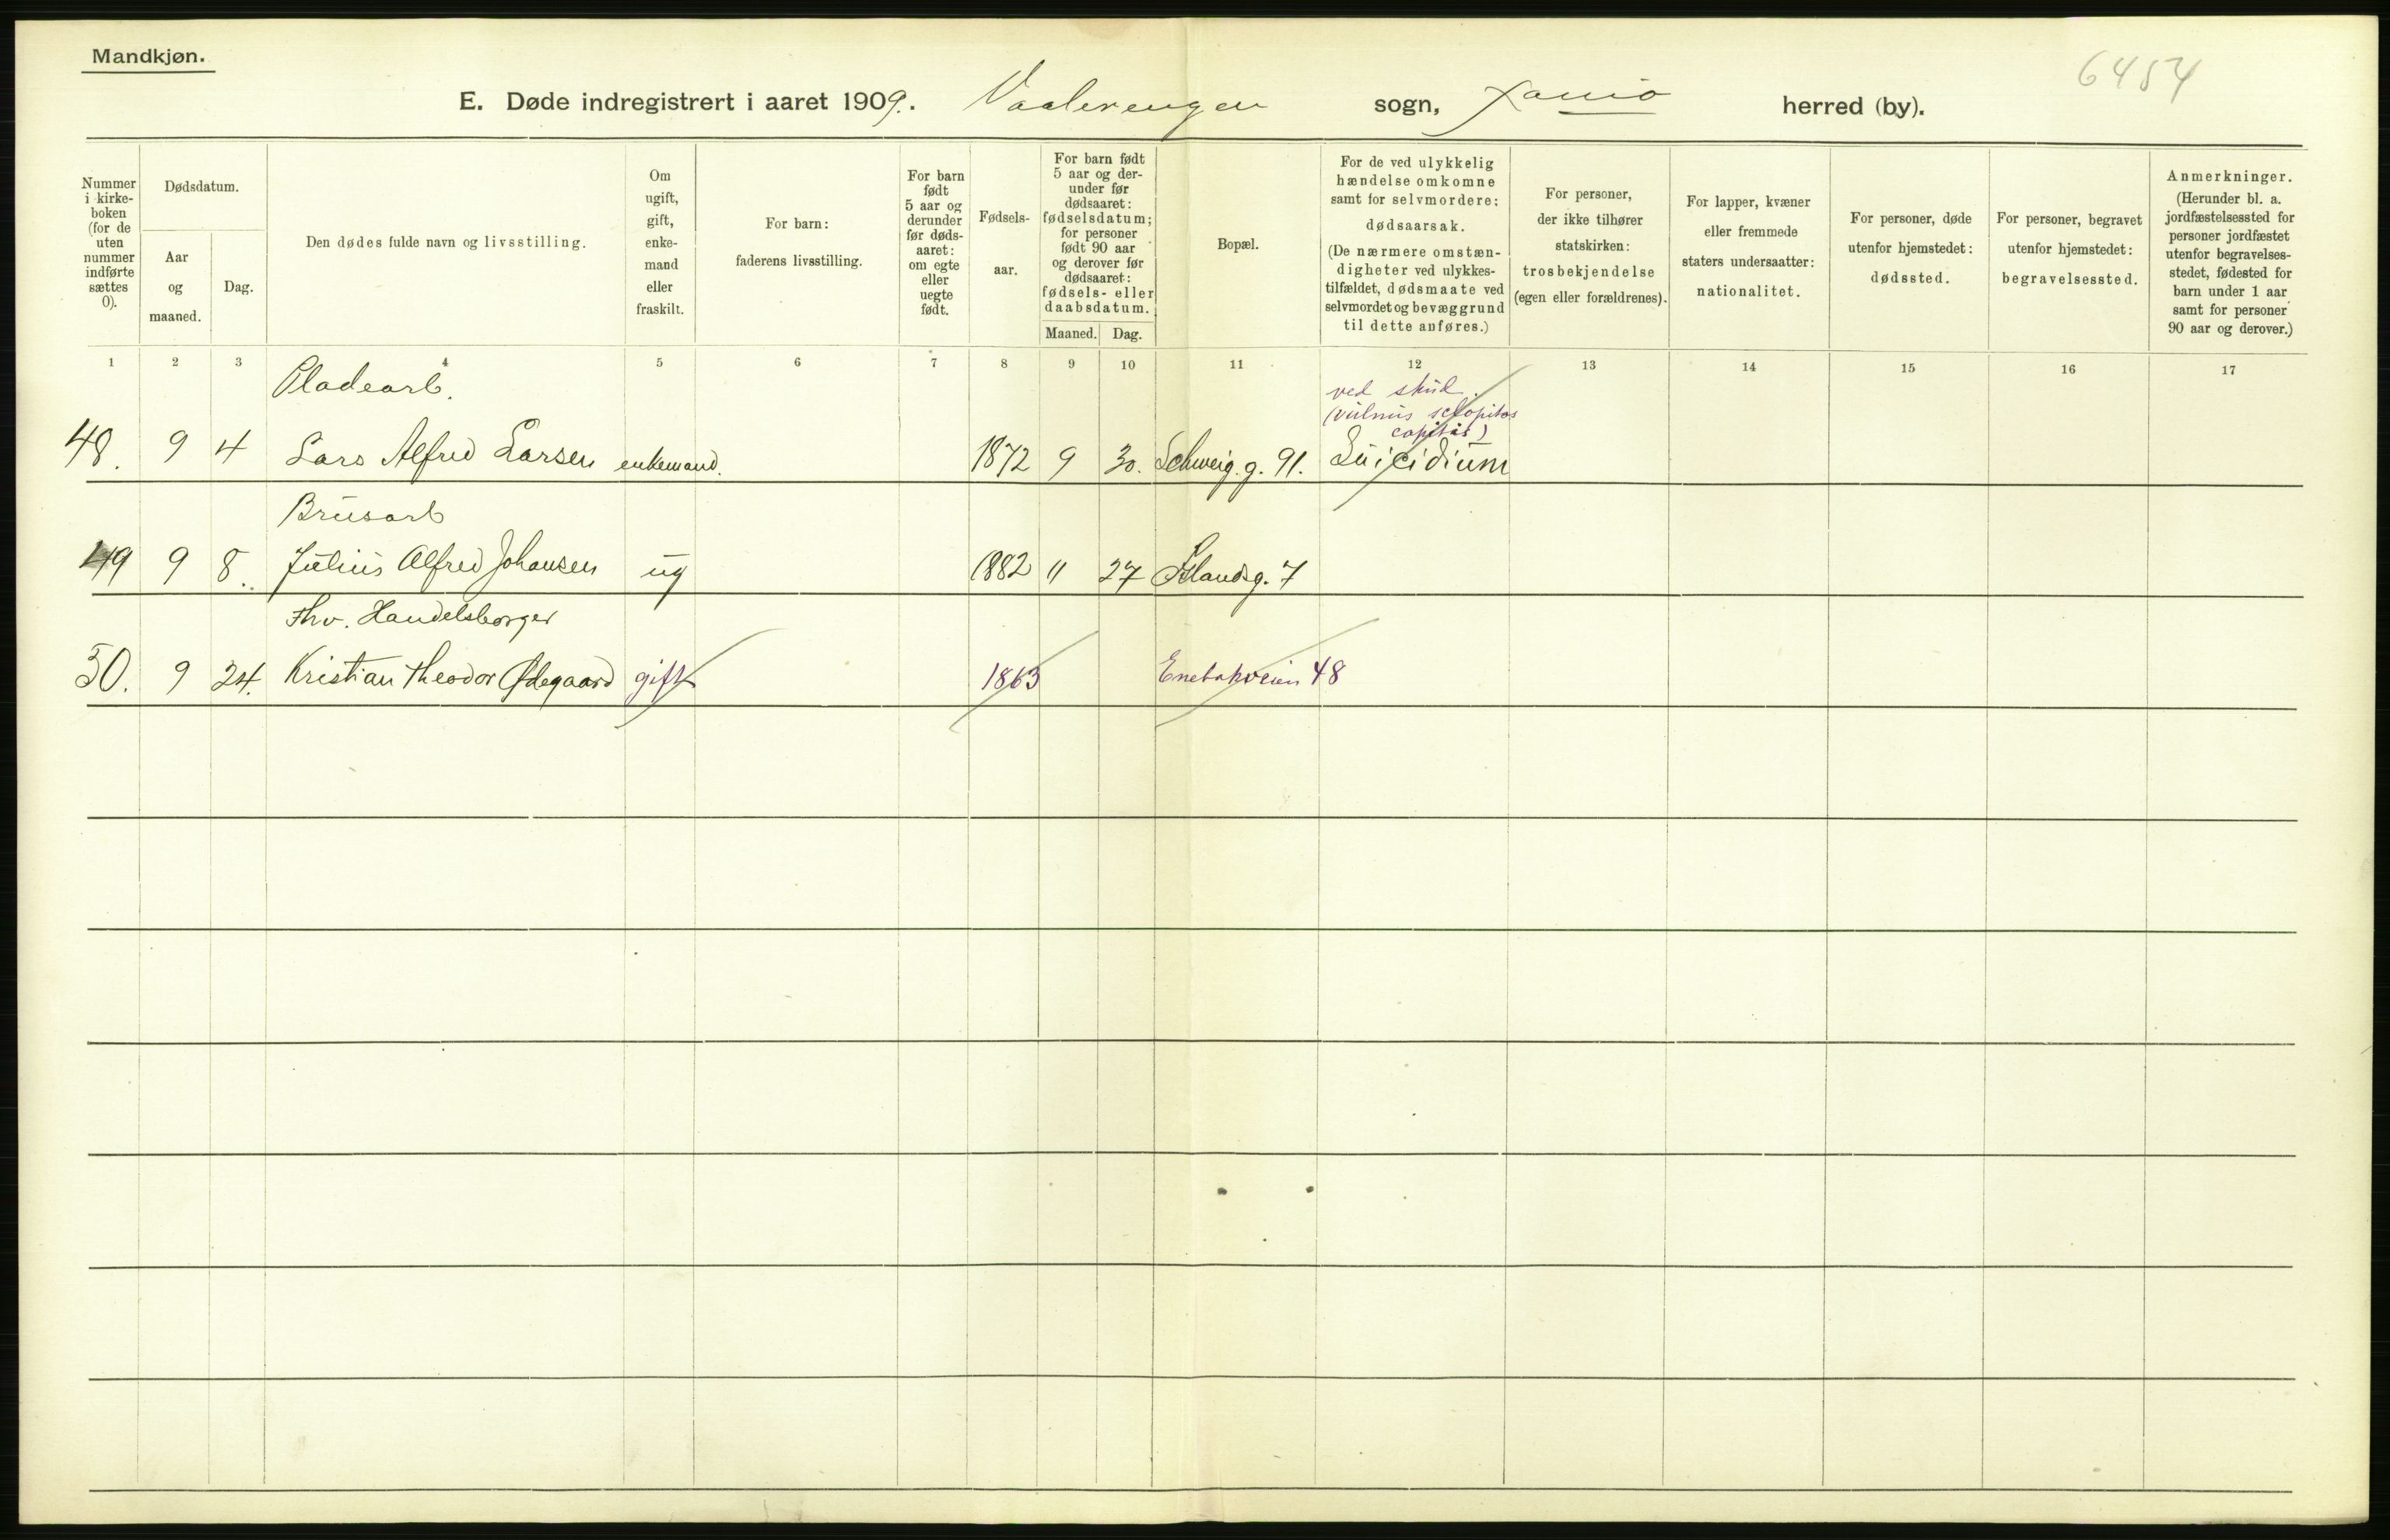 Mandkjøn.
6454
E. Døde indregistrert i aaret 1909. Vaalerengen sogn, Xania herred (by).
Nummer i kirke-boken (for de uten nummer indførte sættes 0).
Dødsdatum.
Aar og maaned.
Dag.
Den dødes fulde navn og livsstilling.
Om ugift, gift, enke-mand eller fraskilt.
For barn: faderens livsstilling.
For barn født 5 aar og derunder før døds-aaret: om egte eller uegte født.
Fødsels-aar.
For barn født 5 aar og der-under før dødsaaret: fødselsdatum; for personer født 90 aar og derover før dødsaaret: fødsels- eller daabsdatum.
Maaned. Dag.
Bopæl.
For de ved ulykkelig hændelse omkomne samt for selvmordere: dødsaarsak. (De nærmere omstæn-digheter ved ulykkes-tilfældet, dødsmaate ved selvmordet og bevæggrund til dette anføres.)
For personer, der ikke tilhører statskirken: trosbekjendelse (egen eller forældrenes).
For lapper, kvæner eller fremmede staters undersaatter: nationalitet.
For personer, døde utenfor hjemstedet: dødssted.
For personer, begravet utenfor hjemstedet: begravelsessted.
Anmerkninger. (Herunder bl. a. jordfæstelsessted for personer jordfæstet utenfor begravelses-stedet, fødested for barn under 1 aar samt for personer 90 aar og derover.)
1 2 3 4 5 6 7 8 9 10 11 12 13 14 15 16 17
Pladearb.
ved skud.
(vulnus sclopitos
capitis)
48. 9 4 Lars Alfred Larsen enkemand. 1872 9 30. Schweig. g. 91. Suicidium
Brusarb
49 9 8. Julius Alfred Johansen ug 1882 11 27 Islandsg. 7
Fhv. Handelsborger
50. 9 24. Kristian Theodor Ødegaard gift 1863 Enebakveien 48